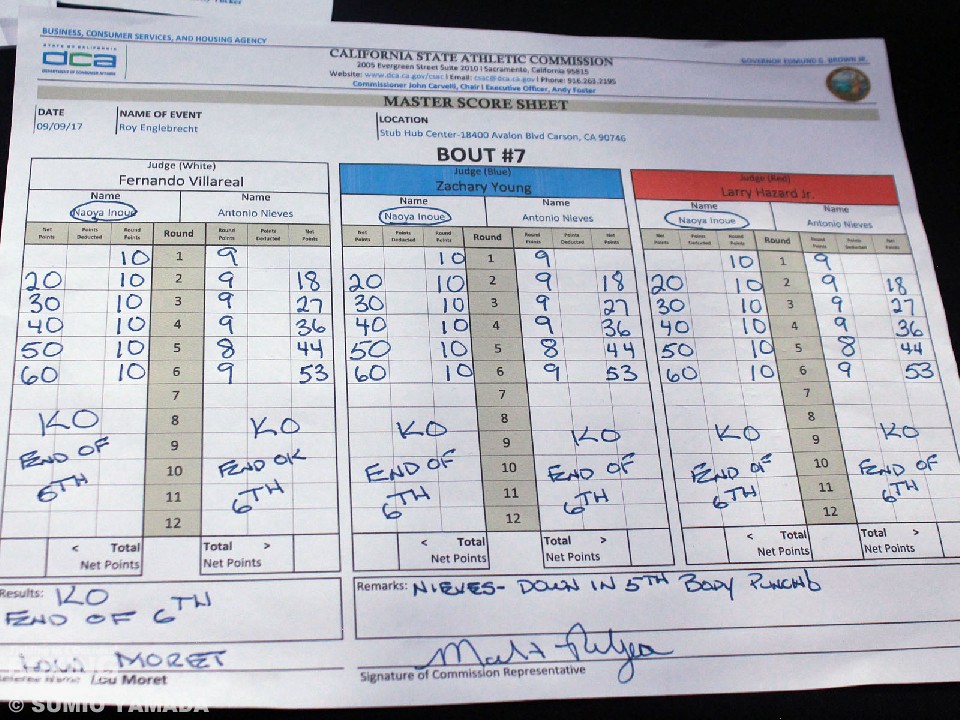 BUSINESS, CONSUMER SERVICES, AND HOUSING AGENCY
STATE OF CALIFORNIA
dca
DEPARTMENT OF CONSUMER AFFAIRS
CALIFORNIA STATE ATHLETIC COMMISSION
2005 Evergreen Street Suite 2010 | Sacramento, California 95815
Website: www.dca.ca.gov/csac | Email: csac@dca.ca.gov | Phone: 916.263.2195
Commissioner John Carvelli, Chair | Executive Officer, Andy Foster
GOVERNOR EDMUND G. BROWN JR.
MASTER SCORE SHEET
DATE
09/09/17
NAME OF EVENT
Roy Englebrecht
LOCATION
Stub Hub Center-18400 Avalon Blvd Carson, CA 90746
BOUT #7
Judge (White)
Fernando Villareal
Name Name
Naoya Inoue Antonio Nieves
Net Points Points Deducted Round Points Round Round Points Points Deducted Net Points
10 1 9
20 10 2 9 18
30 10 3 9 27
40 10 4 9 36
50 10 5 8 44
60 10 6 9 53
7
KO 8 KO
END OF 9
10 END OK
6TH 11 6TH
12
< Total Total >
Net Points Net Points
Judge (Blue)
Zachary Young
Name Name
Naoya Inoue Antonio Nieves
Net Points Points Deducted Round Points Round Round Points Points Deducted Net Points
10 1 9
20 10 2 9 18
30 10 3 9 27
40 10 4 9 36
50 10 5 8 44
60 10 6 9 53
7
KO 8
9 KO
END OF 10 END OF
6TH 11 6TH
12
< Total Total >
Net Points Net Points
Judge (Red)
Larry Hazard Jr.
Name Name
Naoya Inoue Antonio Nieves
Net Points Points Deducted Round Points Round Round Points Points Deducted Net Points
10 1 9
20 10 2 9 18
30 10 3 9 27
40 10 4 9 36
50 10 5 8 44
60 10 6 9 53
7
8
KO 9 KO
END OF 10 END OF
6TH 11 6TH
12
< Total Total >
Net Points Net Points
Results: KO
END OF 6TH
Remarks: NIEVES- DOWN IN 5TH BODY
MORET
Name Lou Moret
Signature of Commission Representative
© SUMIO YAMADA